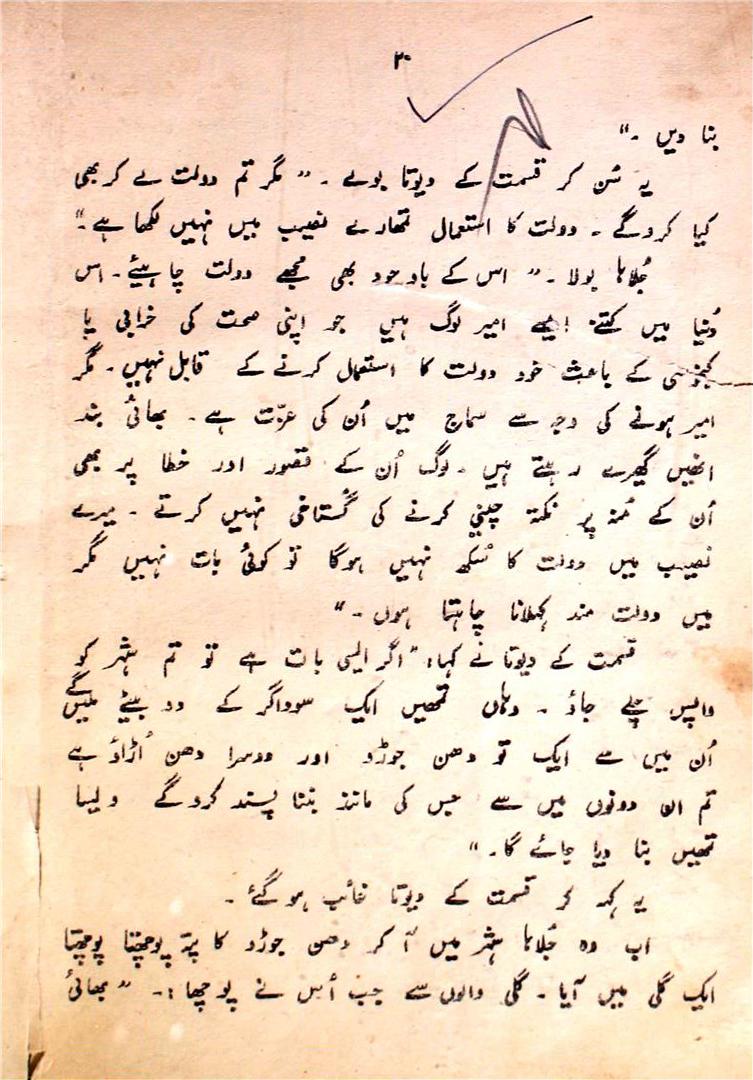 ۲۰
بنا دیں ۔"
یہ سُن کر قسمت کے دیوتا بولے ۔ " مگر تم دولت لے کر بھی
کیا کروگے ۔ دولت کا استعمال تمھارے نصیب میں نہیں لکھا ہے ۔"
جُلاہا بولا ۔" اس کے باوجود بھی مجھے دولت چاہیئے ۔ اس
دُنیا میں کتنے ایسے امیر لوگ ہیں جو اپنی صحت کی خرابی یا
کنجوسی کے باعث خود دولت کا استعمال کرنے کے قابل نہیں ۔ مگر
امیر ہونے کی وجہ سے سماج میں اُن کی عزّت ہے ۔ بھائی بند
انھیں گھیرے رہتے ہیں ۔ لوگ اُن کے قصور اور خطا پر بھی
اُن کے مُنہ پر نکتہ چینی کرنے کی گُستاخی نہیں کرتے ۔ میرے
نصیب میں دولت کا سُکھ نہیں ہوگا تو کوئی بات نہیں مگر
میں دولت مند کہلانا چاہتا ہوں ۔"
قسمت کے دیوتا نے کہا: "اگر ایسی بات ہے تو تم شہر کو
واپس چلے جاؤ ۔ وہاں تمھیں ایک سوداگر کے دو بیٹے ملیں گے
اُن میں سے ایک تو دھن جوڑو اور دوسرا دھن اُڑاؤ ہے
تم ان دونوں میں سے جس کی مانند بننا پسند کروگے ویسا
تمھیں بنا دیا جائے گا ۔"
یہ کہہ کر قسمت کے دیوتا غائب ہوگئے ۔
اب وہ جُلاہا شہر میں آکر دھن جوڑو کا پتہ پوچھتا پوچھتا
ایک گلی میں آیا ۔ گلی والوں سے جب اُس نے پوچھا :۔ " بھائی